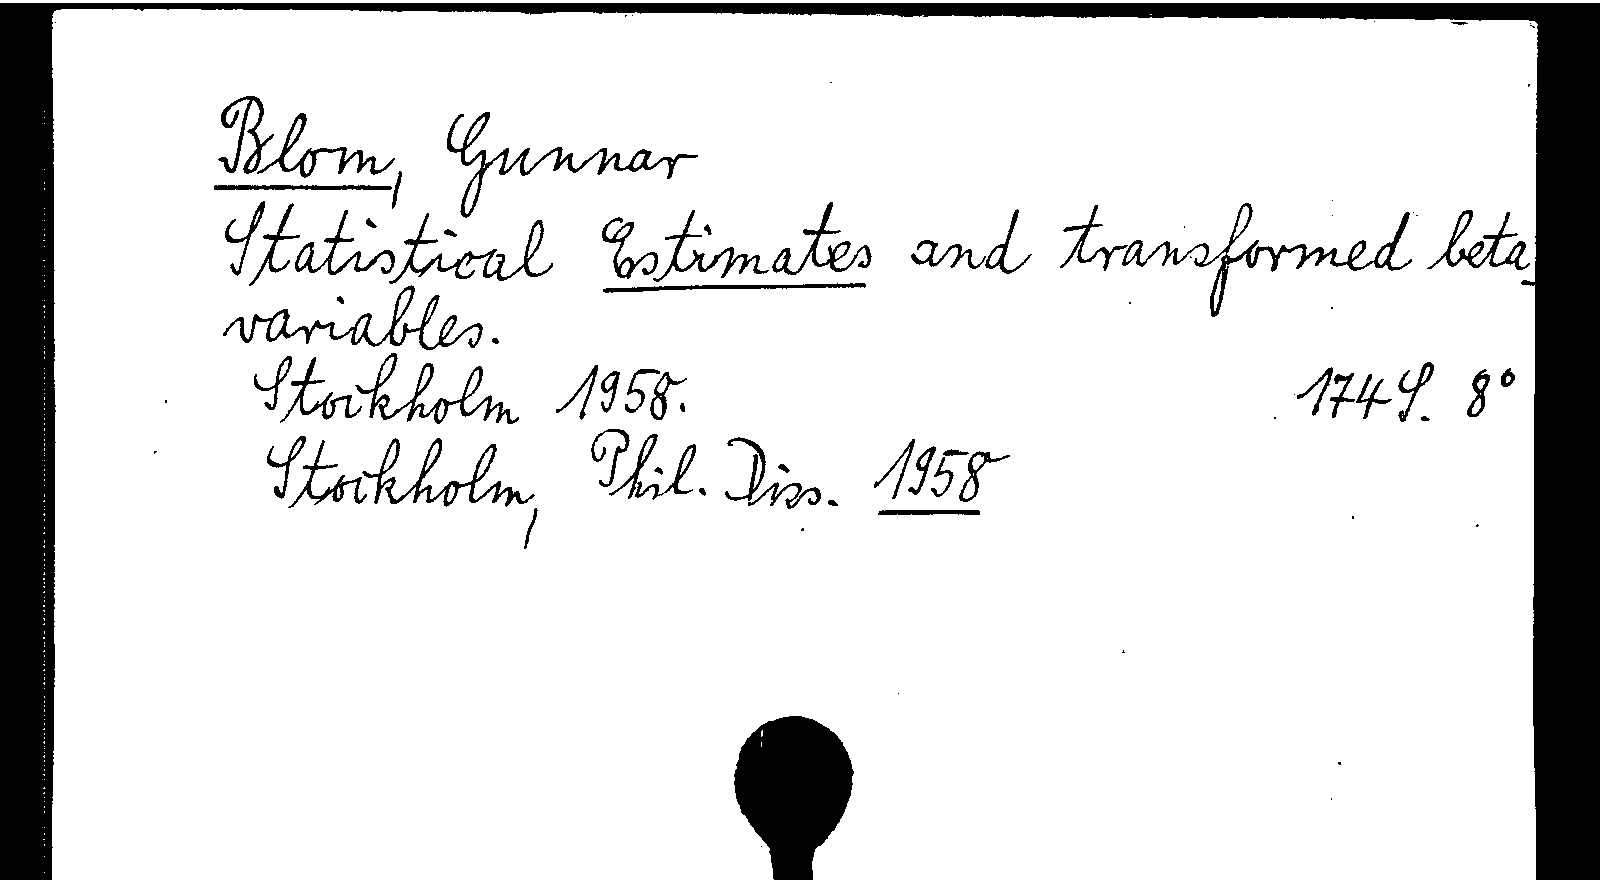 Blom, Gunnar
Statistical Estimates and transformed beta-
variables.
Stockholm 1958. 174 S. 8°
Stockholm, Phil. Diss. 1958